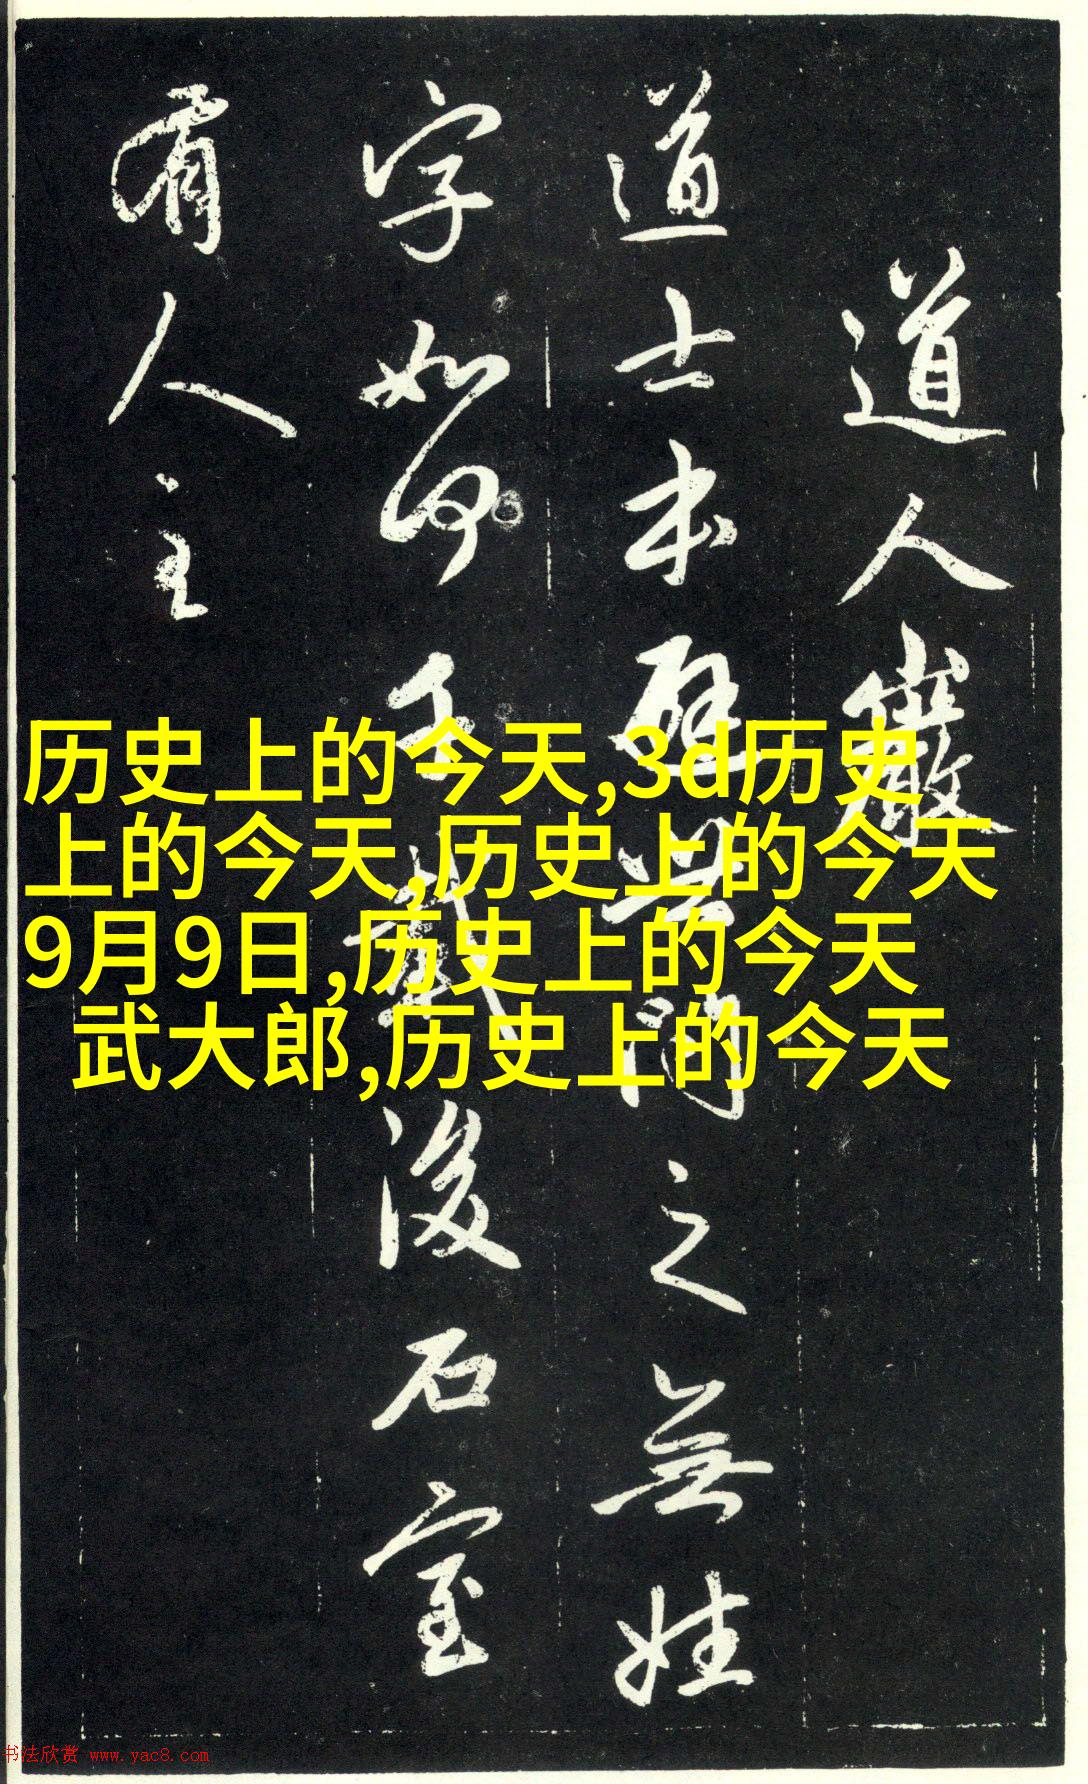 道人巖
道士本之無姓
字如何千載後石室
有人主
历史上的今天,3d历史
上的今天,历史上的今天
9月9日,历史上的今天
武大郎,历史上的今天
书法欣赏 www.yac8.com